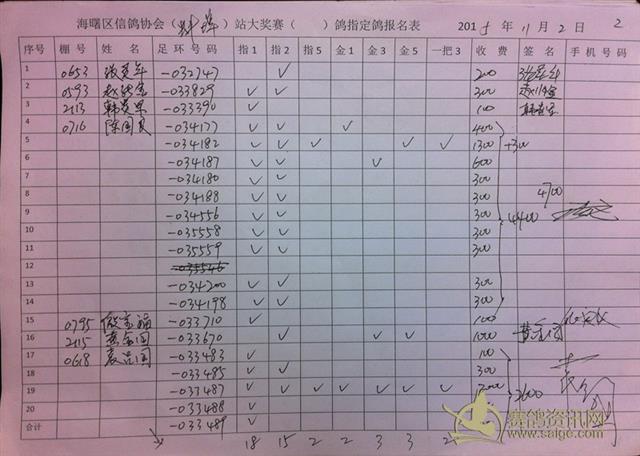 海曙区信鸽协会（ ）站大奖赛（ ）鸽指定鸽报名表 2015年11月2日 2
序号 棚号 姓名 足环号码 指1 指2 指5 金1 金3 金5 一把3 收费 签名 手机号码
1 0653 -032747 ✓ 200
2 0593 -033829 ✓ ✓ 300
3 2113 -033390 ✓ 100
4 0716 陈国良 -034177 ✓ ✓ ✓ 400
5 -034182 ✓ ✓ ✓ ✓ ✓ 1300 +300
6 -034187 ✓ ✓ ✓ 600
7 -034180 ✓ ✓ 300
8 -034188 ✓ ✓ 300 4700
9 -034556 ✓ ✓ 300 4400
10 -035558 ✓ ✓ 300
11 -035559 ✓ ✓ 300
12 -035546
13 -034200 ✓ ✓ 300
14 -034198 ✓ ✓ 300
15 0795 -033710 ✓ 100
16 2115 -033670 ✓ ✓ ✓ 1000
17 0618 -033483 ✓ 100
18 -033485 ✓ ✓ 300
19 -033487 ✓ ✓ ✓ ✓ ✓ ✓ ✓
20 -033488 ✓
合计 -033489 ✓
18 15 2 2 3 3 2
赛鸽资讯网
www.saige.com